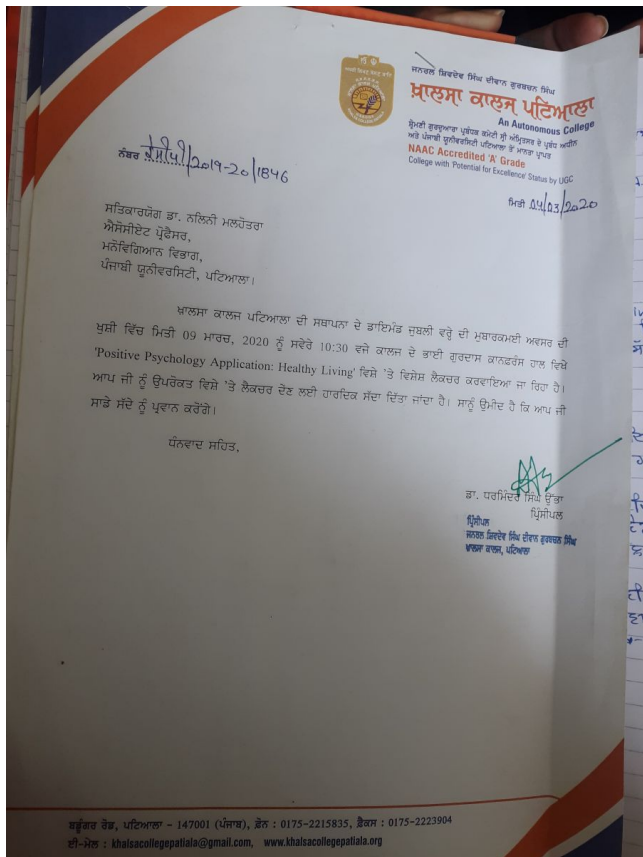 ਜਨਰਲ ਸ਼ਿਵਦੇਵ ਸਿੰਘ ਦੀਵਾਨ ਗੁਰਬਚਨ ਸਿੰਘ
ਖ਼ਾਲਸਾ ਕਾਲਜ ਪਟਿਆਲਾ
An Autonomous College
ਸ਼੍ਰੋਮਣੀ ਗੁਰਦੁਆਰਾ ਪ੍ਰਬੰਧਕ ਕਮੇਟੀ ਸ੍ਰੀ ਅੰਮ੍ਰਿਤਸਰ ਦੇ ਪ੍ਰਬੰਧ ਅਧੀਨ
ਅਤੇ ਪੰਜਾਬੀ ਯੂਨੀਵਰਸਿਟੀ ਪਟਿਆਲਾ ਤੋਂ ਮਾਨਤਾ ਪ੍ਰਾਪਤ
NAAC Accredited 'A' Grade
College with 'Potential for Excellence' Status by UGC
ਨੰਬਰ ਕੇਸੀਪੀ/2019-20/1846
ਮਿਤੀ 04/03/2020
ਸਤਿਕਾਰਯੋਗ ਡਾ. ਨਲਿਨੀ ਮਲਹੋਤਰਾ
ਐਸੋਸੀਏਟ ਪ੍ਰੋਫੈਸਰ,
ਮਨੋਵਿਗਿਆਨ ਵਿਭਾਗ,
ਪੰਜਾਬੀ ਯੂਨੀਵਰਸਿਟੀ, ਪਟਿਆਲਾ।
ਖ਼ਾਲਸਾ ਕਾਲਜ ਪਟਿਆਲਾ ਦੀ ਸਥਾਪਨਾ ਦੇ ਡਾਇਮੰਡ ਜੁਬਲੀ ਵਰ੍ਹੇ ਦੀ ਮੁਬਾਰਕਮਈ ਅਵਸਰ ਦੀ
ਖੁਸ਼ੀ ਵਿੱਚ ਮਿਤੀ 09 ਮਾਰਚ, 2020 ਨੂੰ ਸਵੇਰੇ 10:30 ਵਜੇ ਕਾਲਜ ਦੇ ਭਾਈ ਗੁਰਦਾਸ ਕਾਨਫ਼ਰੰਸ ਹਾਲ ਵਿਖੇ
'Positive Psychology Application: Healthy Living' ਵਿਸ਼ੇ 'ਤੇ ਵਿਸ਼ੇਸ਼ ਲੈਕਚਰ ਕਰਵਾਇਆ ਜਾ ਰਿਹਾ ਹੈ।
ਆਪ ਜੀ ਨੂੰ ਉਪਰੋਕਤ ਵਿਸ਼ੇ 'ਤੇ ਲੈਕਚਰ ਦੇਣ ਲਈ ਹਾਰਦਿਕ ਸੱਦਾ ਦਿੱਤਾ ਜਾਂਦਾ ਹੈ। ਸਾਨੂੰ ਉਮੀਦ ਹੈ ਕਿ ਆਪ ਜੀ
ਸਾਡੇ ਸੱਦੇ ਨੂੰ ਪ੍ਰਵਾਨ ਕਰੋਂਗੇ।
ਧੰਨਵਾਦ ਸਹਿਤ,
ਡਾ. ਧਰਮਿੰਦਰ ਸਿੰਘ ਉੱਭਾ
ਪ੍ਰਿੰਸੀਪਲ
ਪ੍ਰਿੰਸੀਪਲ
ਜਨਰਲ ਸ਼ਿਵਦੇਵ ਸਿੰਘ ਦੀਵਾਨ ਗੁਰਬਚਨ ਸਿੰਘ
ਖਾਲਸਾ ਕਾਲਜ, ਪਟਿਆਲਾ
ਬਡੂੰਗਰ ਰੋਡ, ਪਟਿਆਲਾ - 147001 (ਪੰਜਾਬ), ਫ਼ੋਨ : 0175-2215835, ਫ਼ੈਕਸ : 0175-2223904
ਈ-ਮੇਲ : khalsacollegepatiala@gmail.com, www.khalsacollegepatiala.org